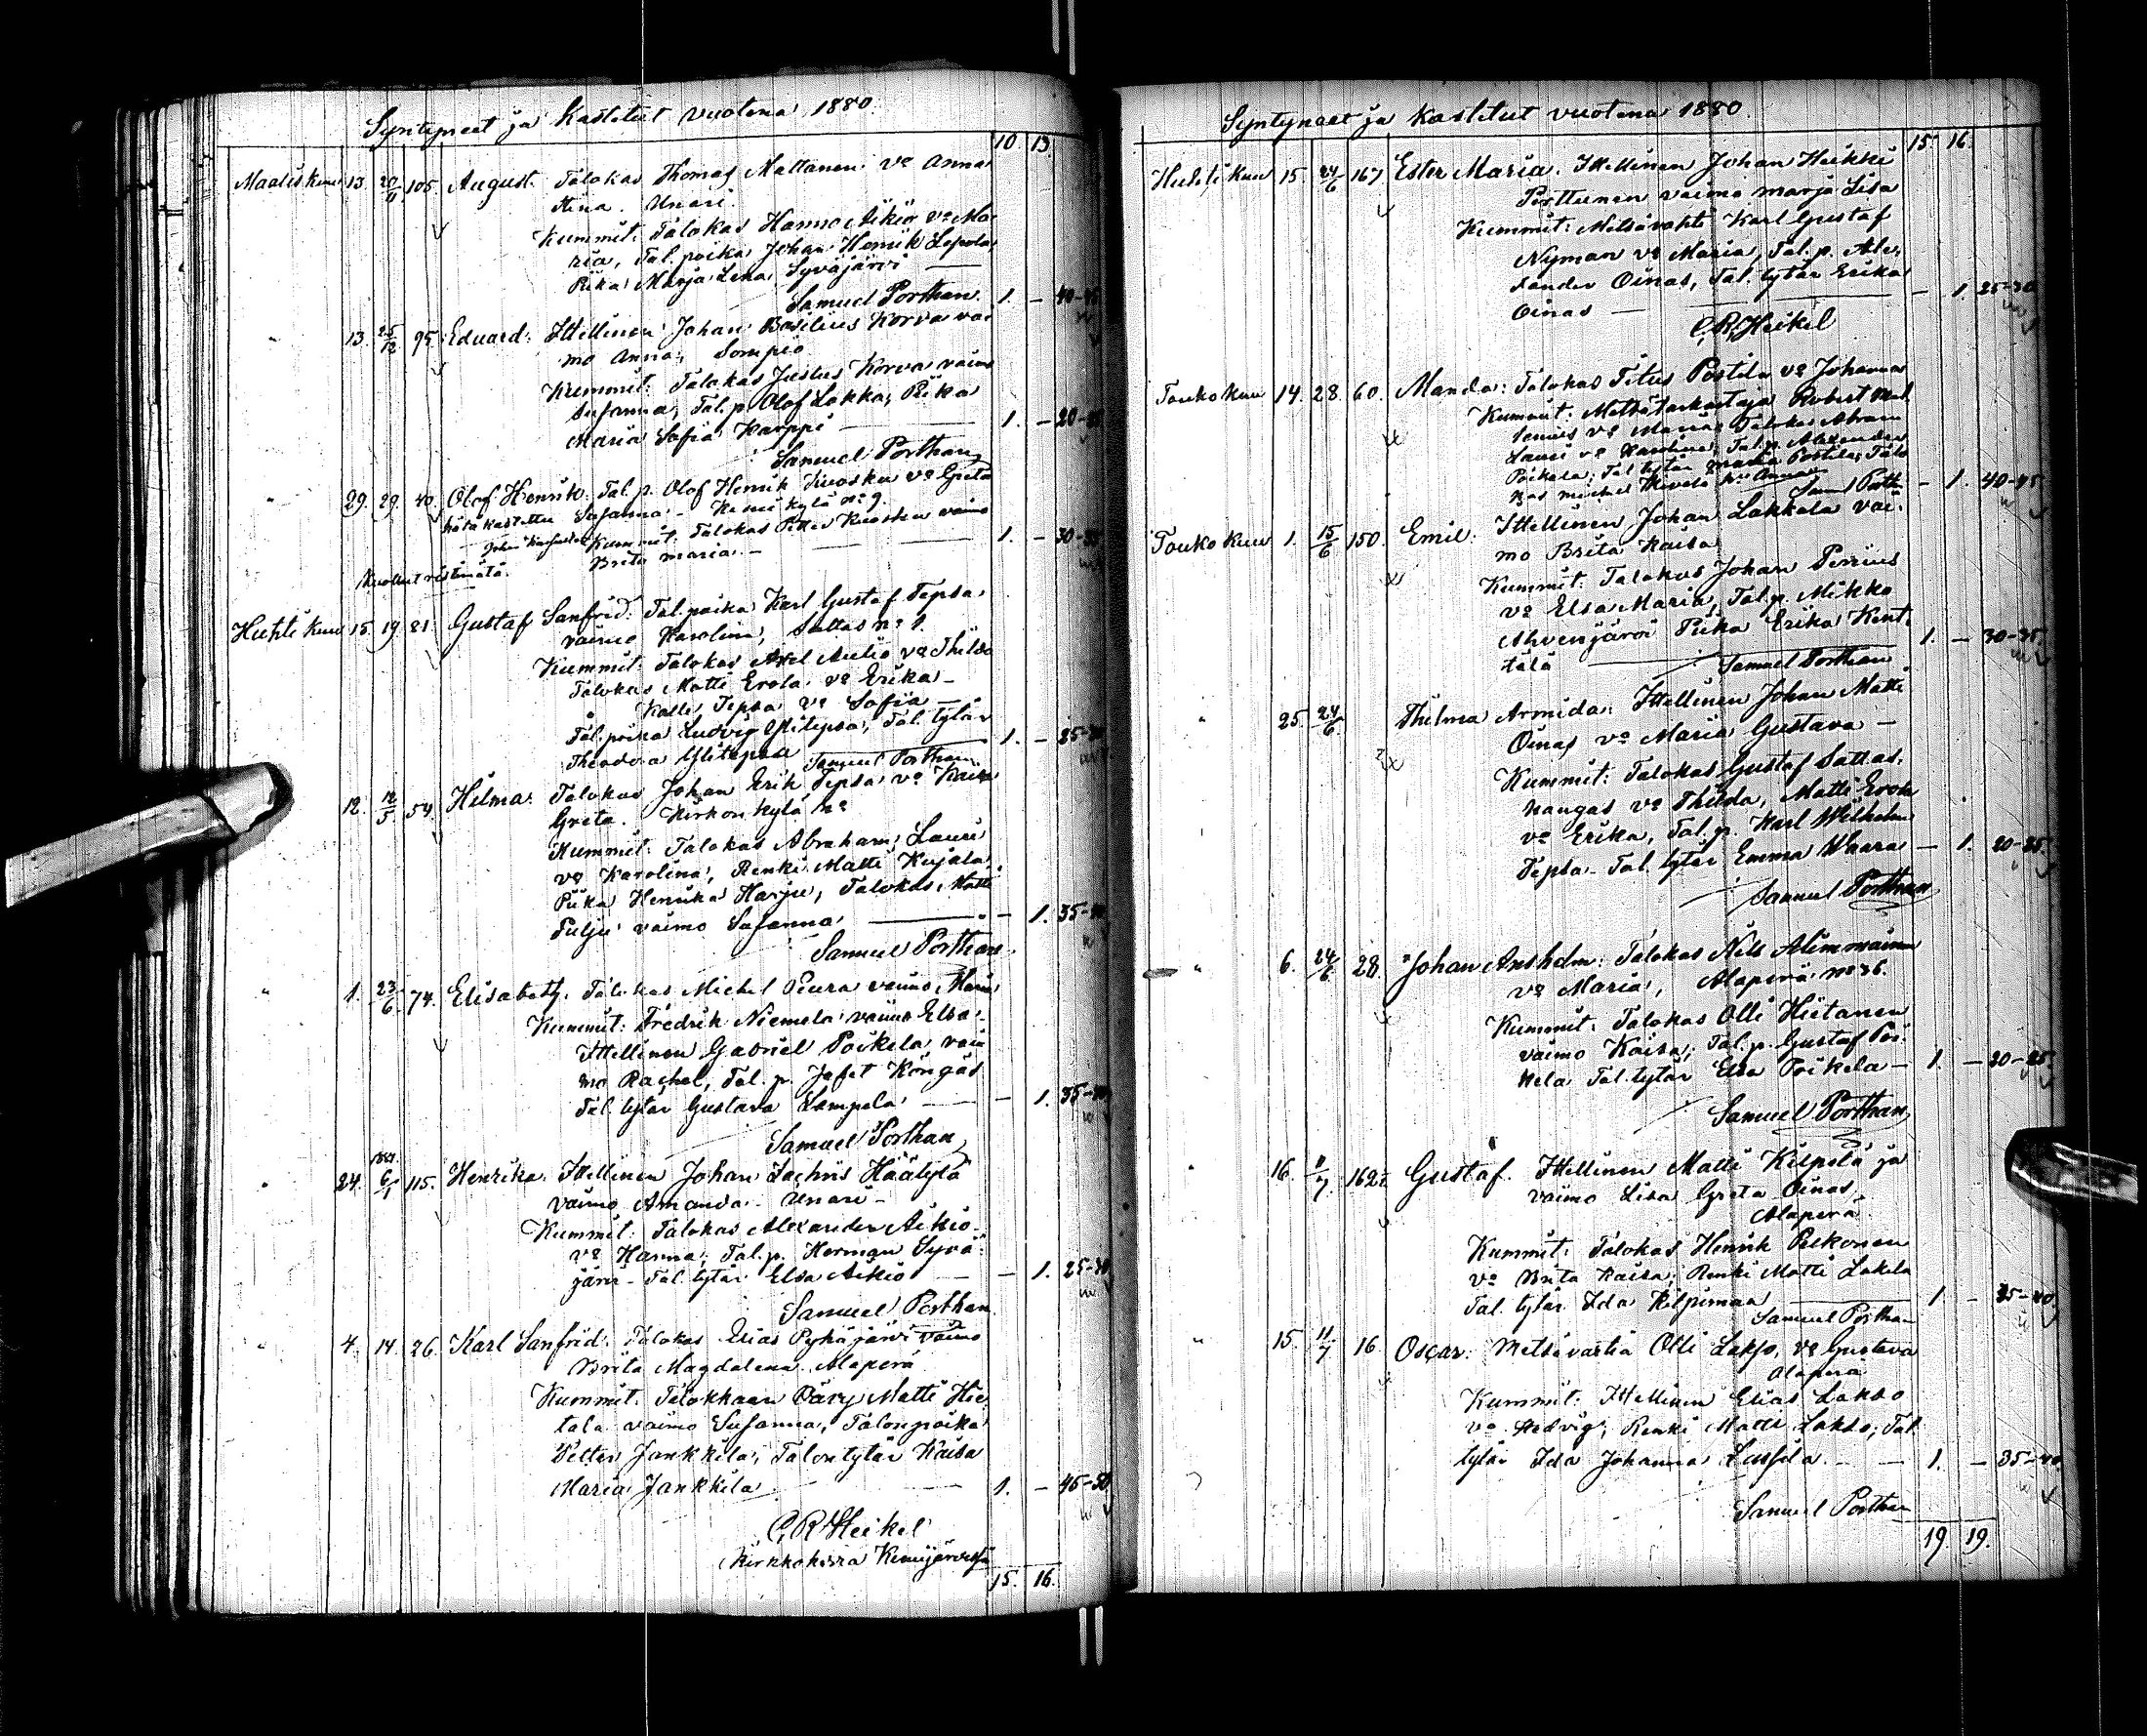 Syntyneet ja Kastetut vuotena 1880.
10 13.
Maaliskuu 13. 20/4 105. August. Talokas Thomas Mattanen vo Anna
Stina. Unari.
Kummit: Talokas Hanno Aikio vo Ma-
ria, Tal. poika Johan Henrik Lepola,
Piika Marja Lena Syväjärvi —
Samuel Porthan. 1. — 40-45
" 13. 25/12 95 Eduard: Ittellinen Johan Basilius Korva vai-
mo Anna, Sompio
Kummit: Talokas Justus Korva vaimo
Susanna, Tal. p. Olof Lakka, Piika
Maria Sofia Karppi — 1. — 20-25
Samuel Porthan
" 29. 29. 40. Olof Henrik. Tal. p. Olof Henrik Kuosku vo Greta
hätäkastettu Susanna. — Kemikylä no 9.
Kummit: Talokas Petter Kuosku vaimo
Brita Maria. — 1. — 30-35
Kuollut ristimätä.
Huhtikuu 15. 19. 81. Gustaf Sanfrid: Tal. poika Karl Gustaf Tepsa,
vaimo Karolina, Sattas no 1.
Kummit: Talokas Axel Aulio vo Thilda
Talokas Matti Erola vo Erika —
" Kalle Tepsa vo Sofia —
Tal. poika Ludvig Ylitepsa, Tal. tytär
Theodora Ylitepsa 1. — 25-30
Samuel Porthan
12. 12/5 54 Hilma: Talokas Johan Erik Tepsa vo Kaisa
Greta. Kirkonkylä no
Kummit: Talokas Abraham Lauri
vo Karolina, Renki Matti Kujala
Piika Henrika Harju, Talokas Matti
Pulju vaimo Susanna — — 1. 35-40
Samuel Porthan
" 1. 23/6 74. Elisabeth. Talokas Michel Peura vaimo Maria
Kummit: Fredrik Niemelä vaimo Elsa
Ittellinen Gabriel Poikela vai-
mo Rachel, Tal. p. Jafet Köngäs
Tal. tytär Gustava Lampela — — 1. 35-40
Samuel Porthan
" 24. 1881 6/1 115. Henrika. Ittellinen Johan Häätylä
vaimo Amanda. Unari —
Kummit: Talokas Alexander Aikio
vo Hanna, Tal. p. Herman Syvä-
järvi — Tal. tytär Elsa Aikio — — 1. 25-30
Samuel Porthan
" 4. 14. 26. Karl Sanfrid: Talokas Elias Pyhäjärvi vaimo
Brita Magdalena. Alaperä
Kummit: Talokkaan Matti Hie-
tala vaimo Susanna, Talonpoika
Petter Jankkila, Talon tytär Kaisa
Maria Jankkila — 1. — 45-50
C. R. Heikel
Kirkkoherra Kemijärvessä
15. 16.
Syntyneet ja Kastetut vuotena 1880.
15 16.
Huhtikuu 15. 24/6 167 Ester Maria. Ittellinen Johan Heikki
Porttunen vaimo Marja Lisa
Kummit: Metsävahti Karl Gustaf
Nyman vo Maria, Tal. p. Alex-
sander Oinas, Tal. tytär Erika
Oinas — — 1. 25-30
C. R. Heikel
Toukokuu 14. 28. 60. Manda: Talokas Titus Postila vo Johanna
Kummit: Metsätarkastaja Robert
vo Maria, Talokas Abram
Lauri vo Karolina, Tal. p. Alexander
Poikela, Tal. tytär Maria Postila, Talo-
kas Michel vo Anna
Saml Porth — 1. 40-45
Toukokuu 1. 15/6 150. Emil. Ittellinen Johan Lakkala vai-
mo Brita Kaisa
Kummit: Talokas Johan Perrius
vo Elsa Maria, Tal. p. Mikko
Ahvenjärvi Piika Erika Kent-
tälä — 1. — 30-35
Samuel Porthan
" 25. 24/6 Thelma Armida: Ittellinen Johan Matti
Oinas vo Maria Gustava —
Kummit: Talokas Gustaf Sattas-
kangas vo Thilda, Matti Erola
vo Erika, Tal. p. Karl Wilhelm
Tepsa — Tal. tytär Emma Waara — — 1. 20-25
Samuel Porthan
" 6. 24/6 28. Johan Anshelm: Talokas Nils Alimmainen
vo Maria, Alaperä no 36.
Kummit: Talokas Olli Hietanen
vaimo Kaisa, Tal. p. Gustaf Poi-
kela Tal. tytär Elsa Poikela — 1. — 20-25
Samuel Porthan
" 16. 11/7 162 Gustaf. Ittellinen Matti Kilpelä ja
vaimo Lisa Greta Oinas
Alaperä
Kummit: Talokas Henrik Pelkonen
vo Brita Kaisa, Renki Matti Lakela
Tal. tytär Ida Kilpimaa — 1. — 35-40
Samuel Porthan
" 15. 11/7 16 Oscar: Metsävartia Olli Lakso, vo Gustava
Alaperä
Kummit: Ittellinen Elias Lakso
vo Hedvig, Renki Matti Lakso, Tal.
tytär Ida Johanna Lassila — 1. — 35-40
Samuel Porthan
19. 19.